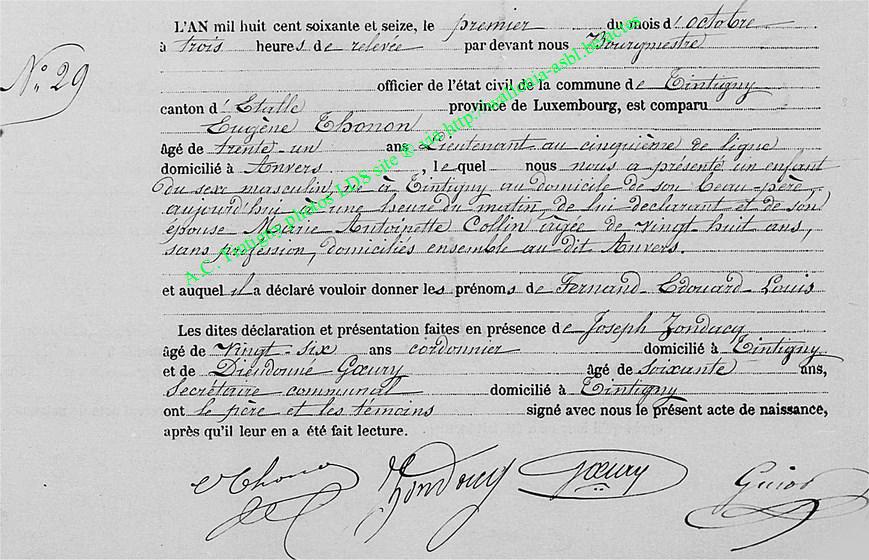 L'AN mil huit cent soixante et seize, le premier du mois d'octobre
à trois heures de relevée par devant nous Bourgmestre
N° 29
officier de l'état civil de la commune de Tintigny
canton d'Etalle province de Luxembourg, est comparu
Eugène Thonon
âgé de trente-un ans Lieutenant au cinquième de ligne
domicilié à Anvers, lequel nous nous a présenté un enfant
du sexe masculin, né à Tintigny au domicile de son beau-père
aujourd'hui à une heure du matin de lui déclarant et de son
épouse Marie Antoinette Collin âgée de vingt huit ans,
sans profession, domiciliés ensemble au dit Anvers.
et auquel il a déclaré vouloir donner les prénoms de Fernand Edouard Louis
Les dites déclaration et présentation faites en présence de Joseph Zonducq
âgé de vingt-six ans cordonnier domicilié à Tintigny
et de Dieudonné Gœury âgé de soixante ans,
Secrétaire communal domicilié à Tintigny
ont le père et les témoins signé avec nous le présent acte de naissance,
après qu'il leur en a été fait lecture.
EThonon Gœury
A.C. Tintigny photos LDS site © via http://wallonia-asbl.be/actes